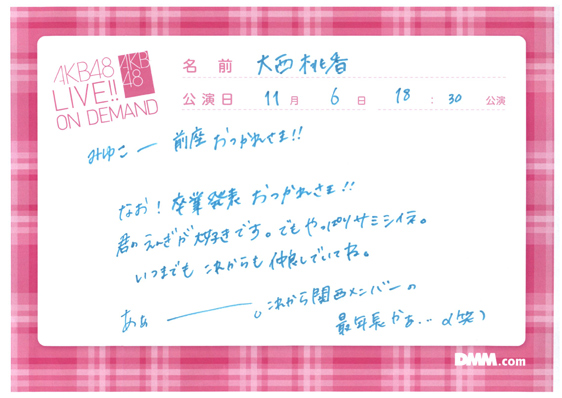 AKB48
LIVE!!
ON DEMAND
AKB
48
名前 大西桃香
公演日 11月 6日 18:30 公演
みゆこー 前座 おつかれさま!!
なお! 卒業発表 おつかれさま!!
君のえがおが大好きです。でもやっぱりサミシイネ。
いつまでも これからも 仲良しでいてね。
あぁ ———。これから関西メンバーの
最年長かぁ... (笑)
DMM.com